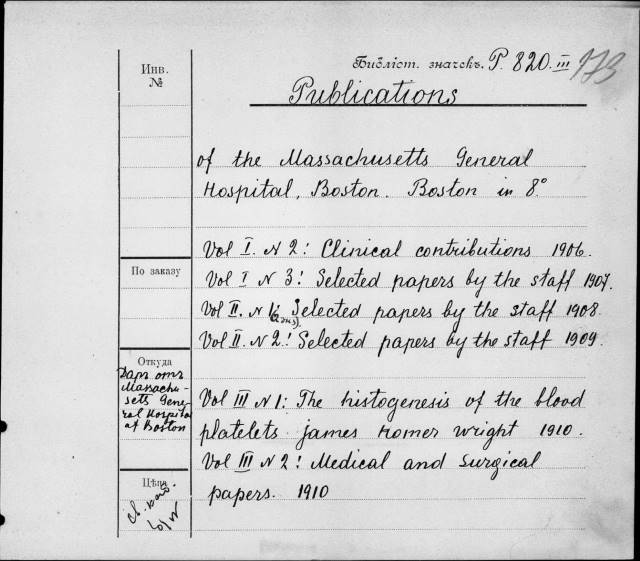 Инв.
№
Библіот. значекъ. P. 820. III 173
Publications
of the Massachusetts General
Hospital, Boston. Boston in 8°
Vol I. N 2: Clinical contributions 1906.
По заказу
Vol I N 3: Selected papers by the staff 1907.
Vol II. N 1: Selected papers by the staff 1908.
(2 экз)
Vol II. N 2: Selected papers by the staff 1909.
Откуда
Даръ отъ
Massachu-
setts Gene-
ral Hospital
at Boston
Vol III N 1: The histogenesis of the blood
platelets james homer wright 1910.
Vol III N 2: Medical and surgical
papers. 1910
Цѣна